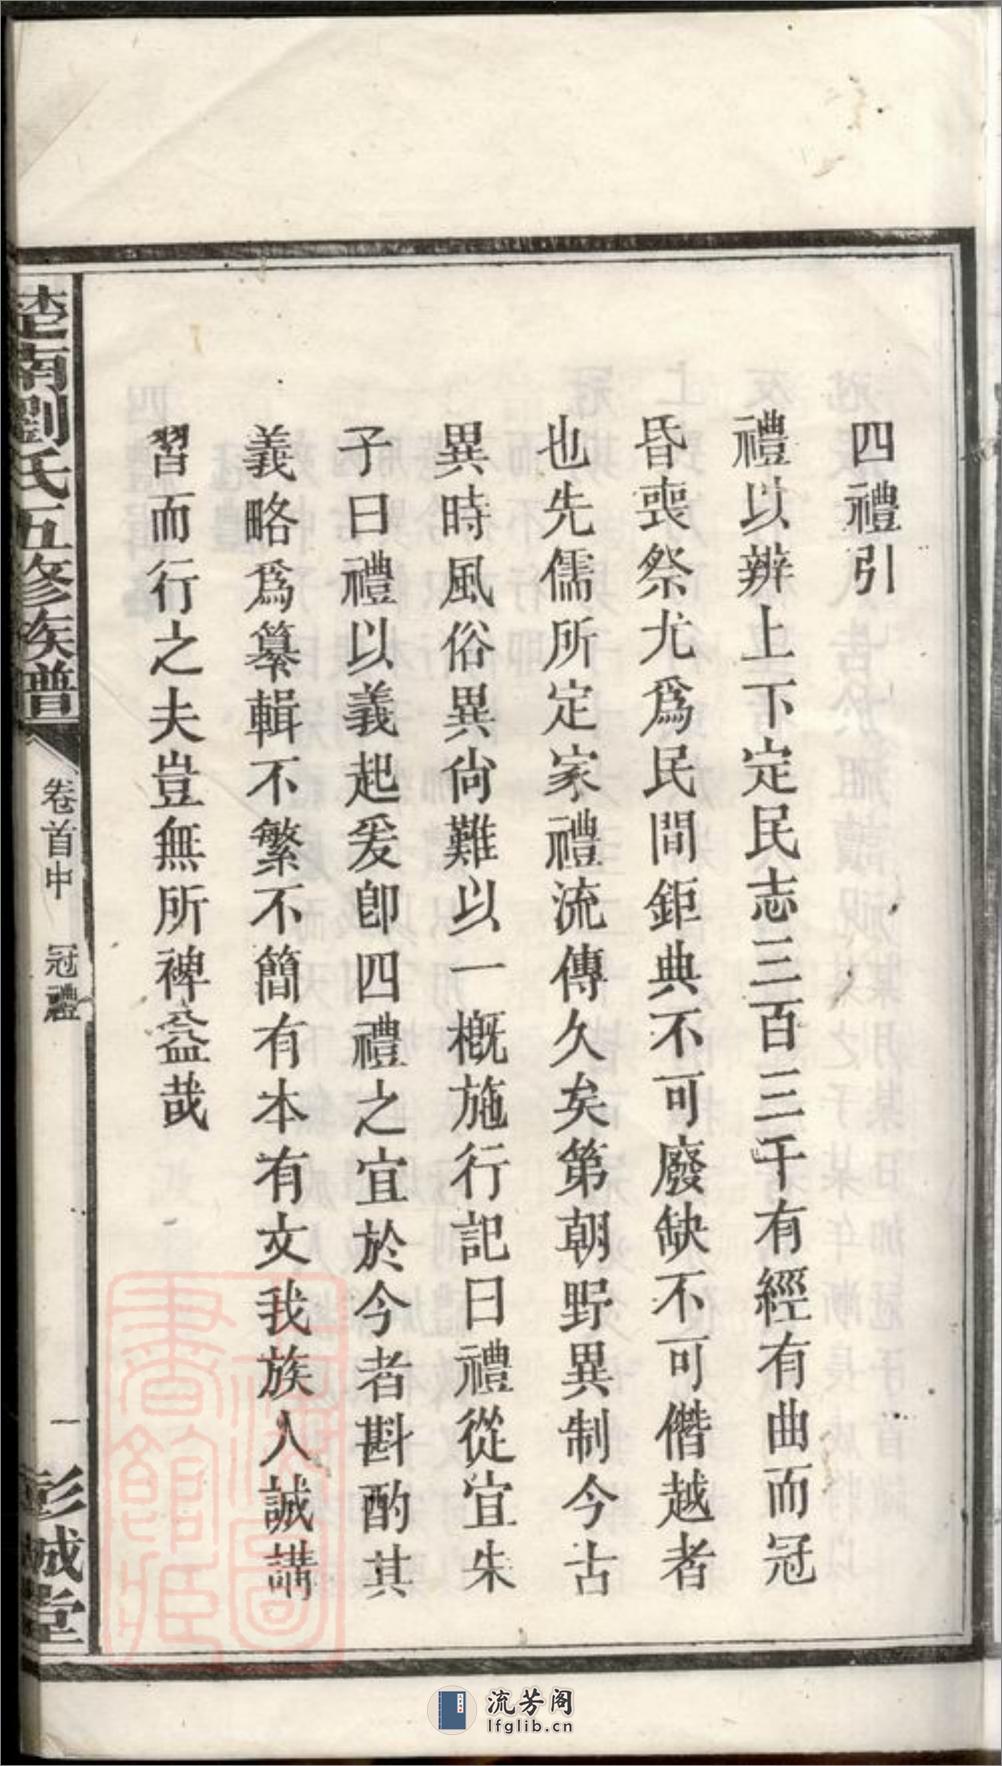 四禮引
禮以辨上下定民志三百三千有經有曲而冠
昏喪祭尤爲民間鉅典不可廢缺不可僭越者
也先儒所定家禮流傳久矣第朝野異制今古
異時風俗異尙難以一槪施行記曰禮從宜朱
子曰禮以義起爰卽四禮之宜於今者斟酌其
義略爲纂輯不繁不簡有本有文我族人誠講
習而行之夫豈無所裨益哉
楚南劉氏五修族譜
卷首中 冠禮
一
彭城堂
上海圖書館藏
流芳阁
lfglib.cn